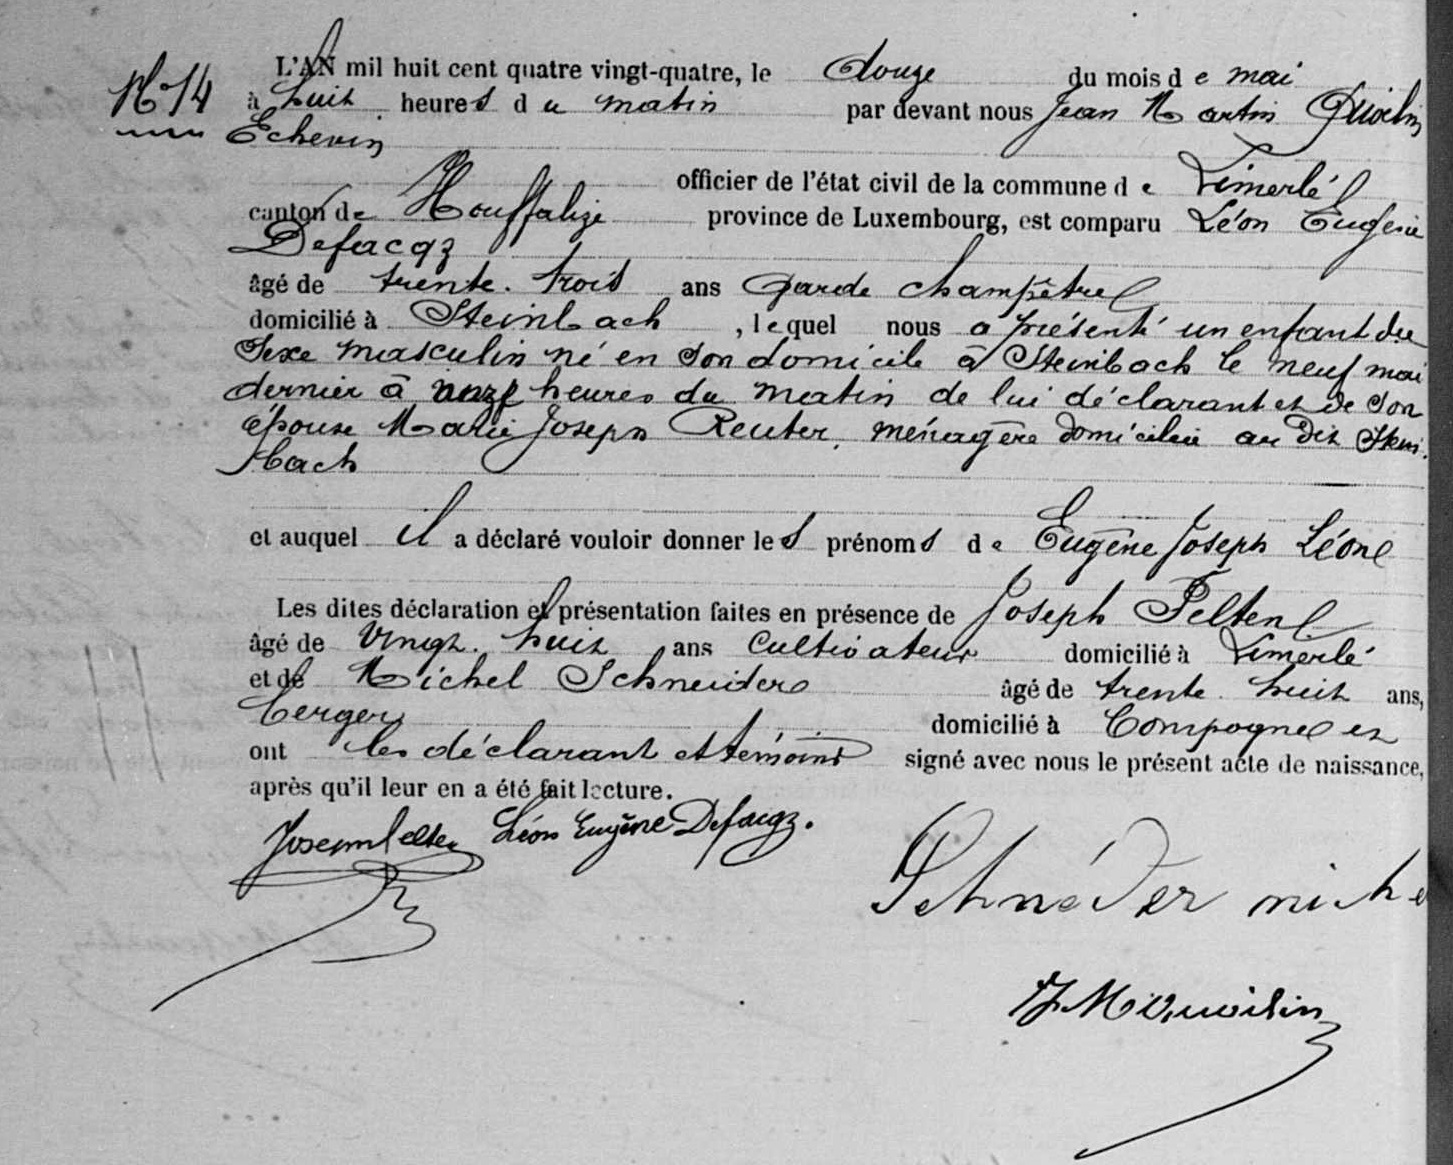 L'AN mil huit cent quatre vingt-quatre, le douze du mois de mai
No 14 à huit heures du matin par devant nous Jean Martin Quoilin
Echevin
officier de l'état civil de la commune de Limerlé
canton de Houffalize province de Luxembourg, est comparu Léon Eugène
Defacqz
âgé de trente-trois ans Garde champêtre
domicilié à Steinbach, lequel nous a présenté un enfant du
sexe masculin né en son domicile à Steinbach le neuf mai
dernier à onze heures du matin de lui déclarant et de son
épouse Marie Joseph Reuter, ménagère domiciliée au dit Stein-
bach
et auquel il a déclaré vouloir donner les prénoms de Eugène Joseph Léon
Les dites déclaration et présentation faites en présence de Joseph Pelten
âgé de vingt-huit ans Cultivateur domicilié à Limerlé
et de Michel Schneider âgé de trente huit ans,
berger domicilié à Compogne et
ont les déclarant et témoins signé avec nous le présent acte de naissance,
après qu'il leur en a été fait lecture.
Joseph Pelten Léon Eugène Defacqz.
Schnéder miche
JM Quoilin